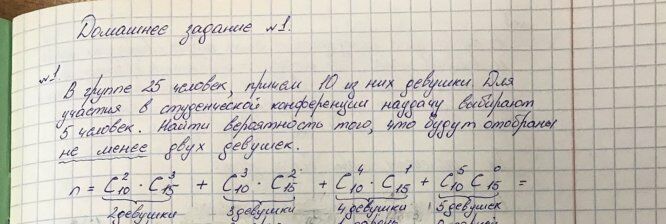 Домашнее задание №1.
№1
В группе 25 человек, причем 10 из них девушки. Для
участия в студенческой конференции наудачу выбирают
5 человек. Найти вероятность того, что будут отобраны
не менее двух девушек.
n = C₁₀² · C₁₅³ + C₁₀³ · C₁₅² + C₁₀⁴ · C₁₅¹ + C₁₀⁵ C₁₅⁰ =
2 девушки 3 девушки 4 девушки 5 девушек